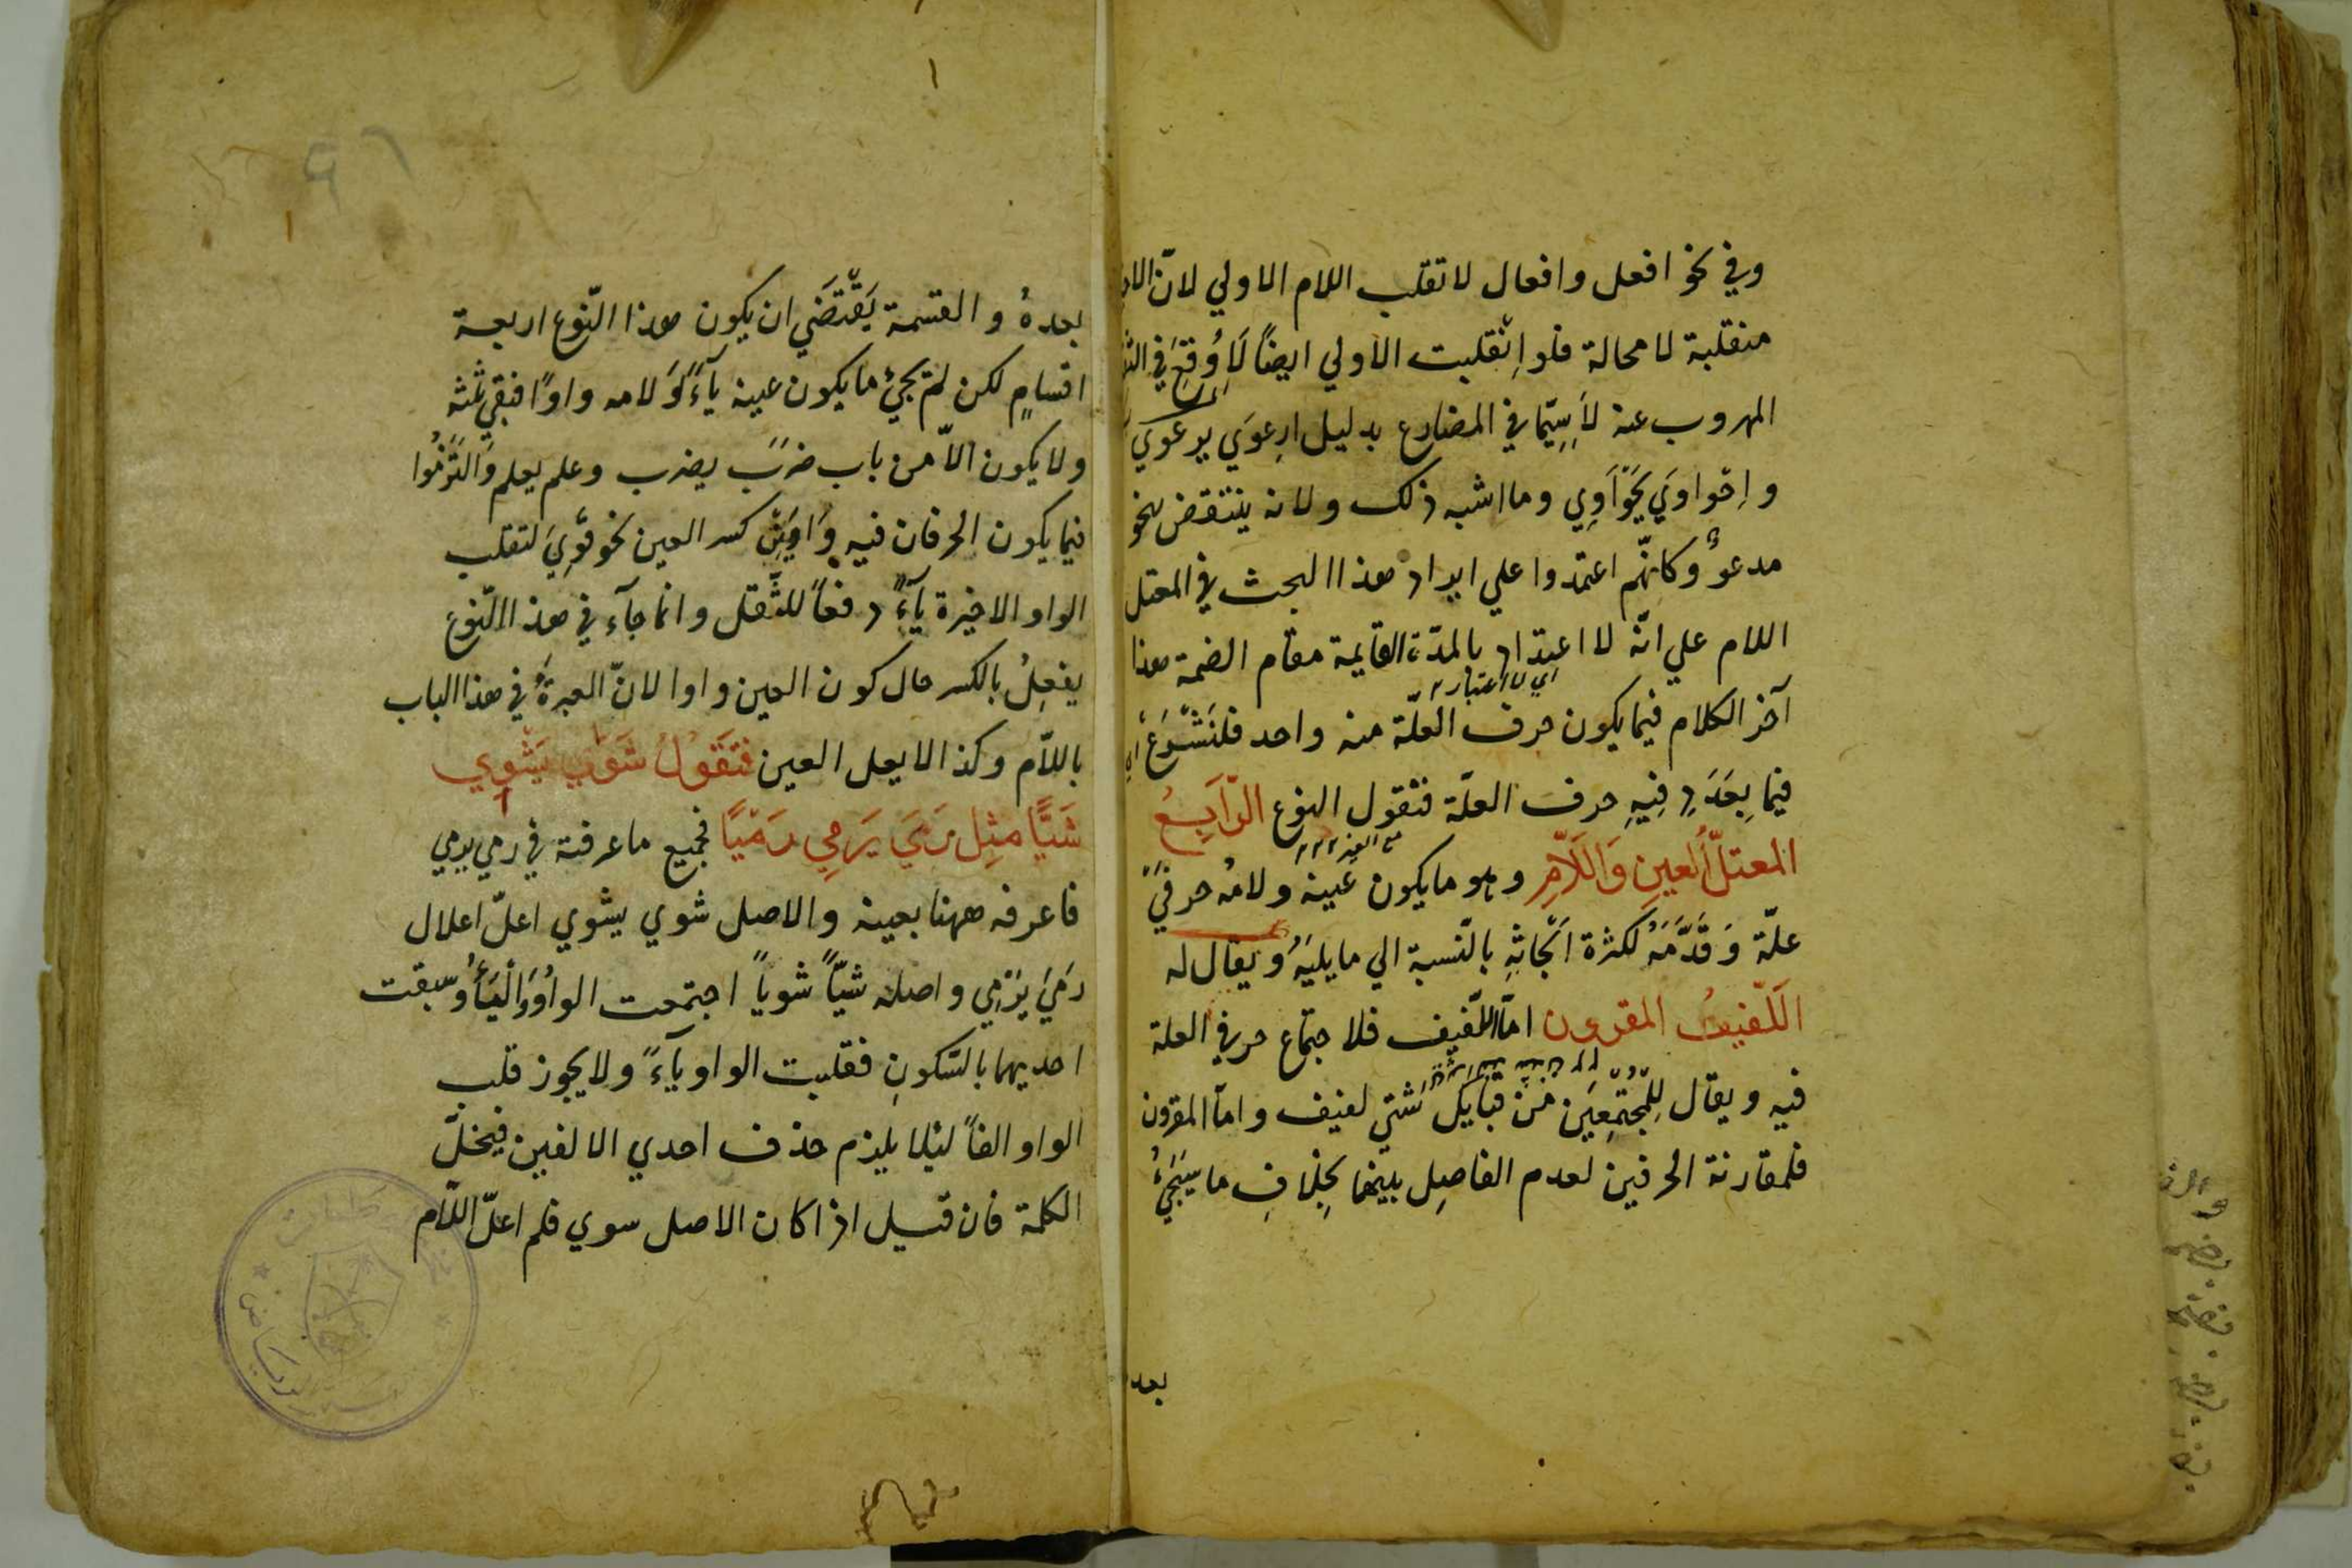 وفي نحو افعل وافعال لا تقلب اللام الاولي لانّ
منقلبة لا محالة فلو اِنْقلبت الاولي ايضًا لَاَوُقِعَ في
المهروب عنه لَاسِيّما في المضارع بدليل ارعوَي يرعوي
و اِحْواوَي يَحْوَاوِي وما اشبه ذلك ولانه ينتقض بنحو
مدعوٌّ وكانهّم اعتمدوا علي ايراد هذا البحث في المعتل
اللام علي انّه لا اعتداد بالمدّة القايمة مقام الضمة هذا
اي لا اعتبار
آخر الكلام فيما يكون حرف العلّة منه واحد فلنَشْرَعْ
فيما تعدّد فِيهِ حرف العلّة فنقول النوع الرّابِعُ
المعتلُّ العينِ وَاللّامِ وهو ما يكون عَينه ولامُه حرفيْ
علّة وَقَدَّمَهُ لكثرة اَبْحَاثِهِ بالنّسبة الي ما يليَهُ وُيقال له
اَللّفيفُ المقرون امّا اللّفيف فلاجتماع حرفي العلة
فيه ويقال لِلْمُجْتَمِعِينَ مِنْ قبايل شتّي لفيف وامّا المقرون
فلمقارنة الحرفين لعدم الفاصِل بينهما بِخِلافِ ما سيَجِيْءُ
بعد
بعدهُ والقسمة يَقْتَضَي ان يكون هذا النّوع اربعة
اقسامٍ لكن لم يجئ ما يكون عينه يآءً وَلامه واوًا فبقي ثلثه
ولا يكون الّا من باب ضرَبَ يضرب وعلم يعلم وَالتَزَمُوا
فيما يكون الحرفان فيه وَاوَيْنِ كسر العين نحو قَوِيَ لتقلب
الواو الاخيرة يآءً دفعاً للثّقل وانما جآء في هذ النّوع
يفعِلُ بالكسر حال كون العين واوا لانّ العبرةَ في هذا الباب
باللّام وكذا لا يعل العين فتَقُولُ شَوَي يَشْوِي
شَيًّا مثِل رَمَيَ يَرمِي رَمْيًا فجميع ما عرفته في رمي يرمي
فاعرفه ههنا بعينه والاصل شوي يشوي اعلّ اعلال
رَمَيَ يَرْمِي واصله شيّاً شوياً اجتمعت الواوُ وَالْيَآءُ وُسبقت
احديهما بالسّكونِ فقلبت الواو يآءً ولا يجوز قلب
الواو الفاً ليلا يلزم حذف احدي الالفين فيخلّ
الكلمة فان قيل اذا كان الاصل سوي فلم اعلّ اللّام